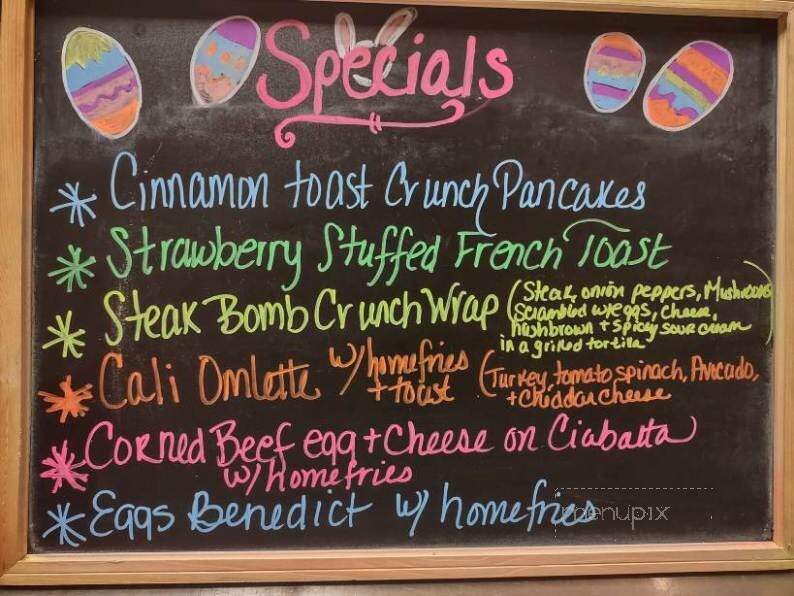 Specials
* Cinnamon toast Crunch Pancakes
* Strawberry Stuffed French Toast
* Steak Bomb Crunch Wrap (Steak, onion peppers, Mushrooms
Scrambled w/eggs, cheese,
hashbrown + spicy sour cream
in a grilled tortilla)
* Cali Omlette w/ homefries
+ toast
(Turkey, tomato spinach, Avocado,
+ Cheddar cheese
* Corned Beef egg + Cheese on Ciabatta
w/ homefries
* Eggs Benedict w/ homefries
menupix